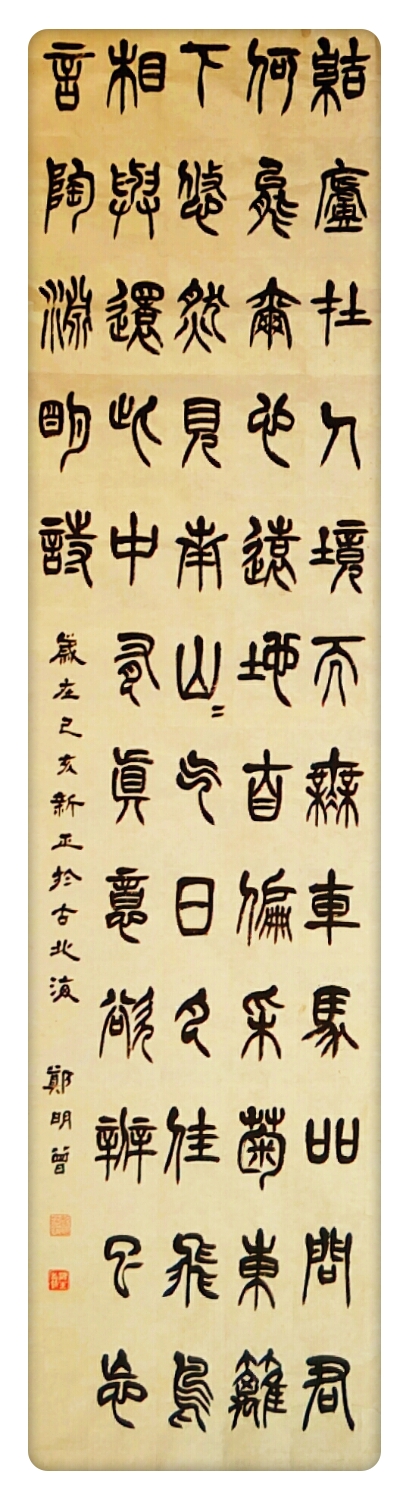 結廬在人境而無車馬吅問君
何能爾心遠地自偏采菊東籬
下悠然見南山〻气日夕佳飛鳥
相與還此中有眞意欲辨已忘
言陶淵明詩
歲在己亥新正於古北海 鄭明曾